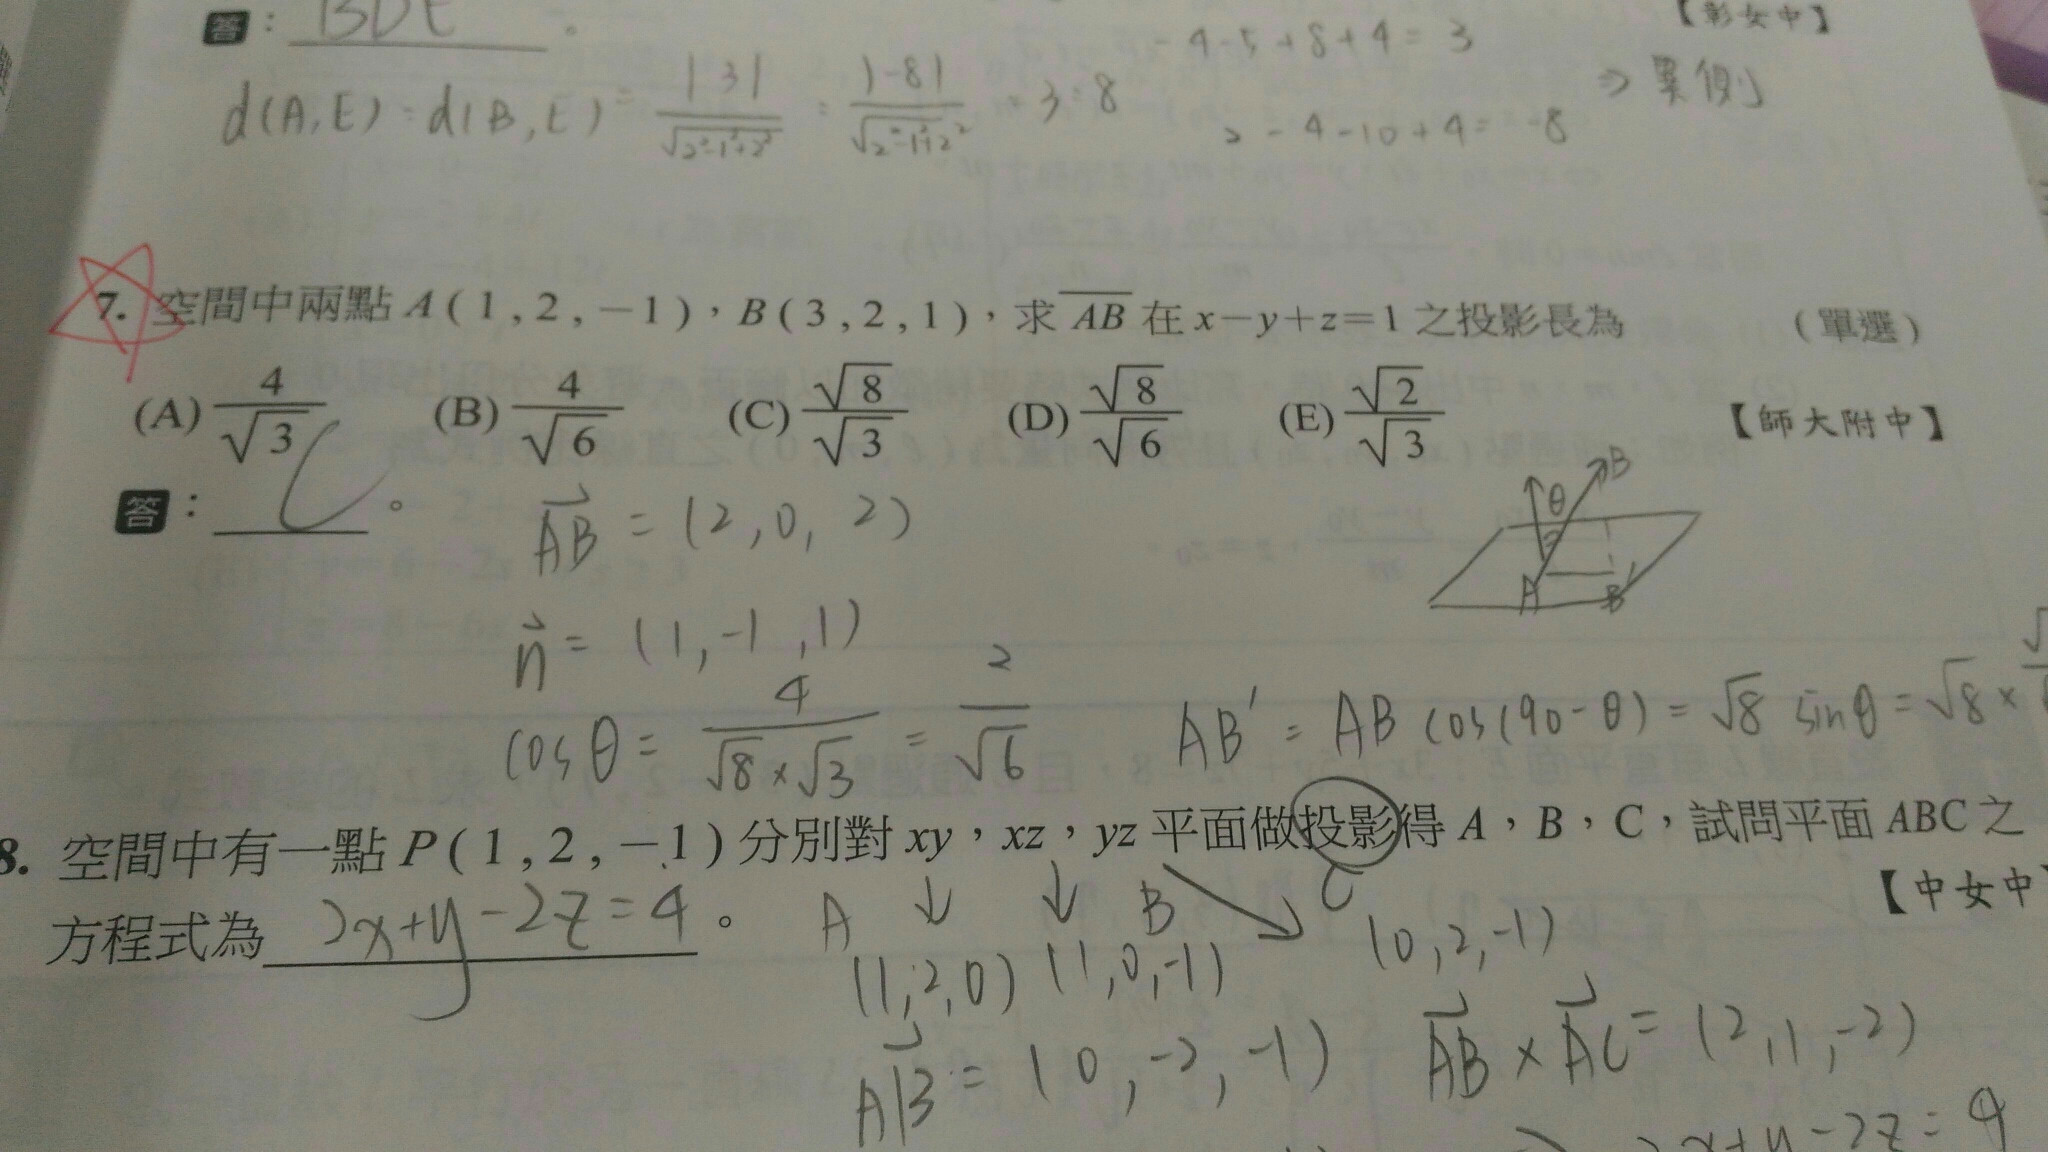 答：BDE。
【彰女中】
-4-5+8+4=3
d(A,E):d(B,E)=|3|/√2²-1²+2²:|-8|/√2²-1²+2²=3:8
2-4-10+4=-8
⇒異側
7. 空間中兩點 A(1,2,-1)，B(3,2,1)，求 AB 在 x-y+z=1 之投影長為 (單選)
(A) 4/√3 (B) 4/√6 (C) √8/√3 (D) √8/√6 (E) √2/√3 【師大附中】
答：C。
AB=(2,0,2)
B θ A B'
n=(1,-1,1)
cosθ=4/√8×√3=2/√6
AB'=AB cos(90-θ)=√8 sinθ=√8×
8. 空間中有一點 P(1,2,-1)分別對 xy，xz，yz 平面做投影得 A，B，C，試問平面 ABC 之
方程式為 2x+y-2z=4。 【中女中
A ↓ ↓ B C
(1,2,0) (1,0,-1) (0,2,-1)
AB=(0,-2,-1) AB×AC=(2,1,-2)
2x+y-2z=4